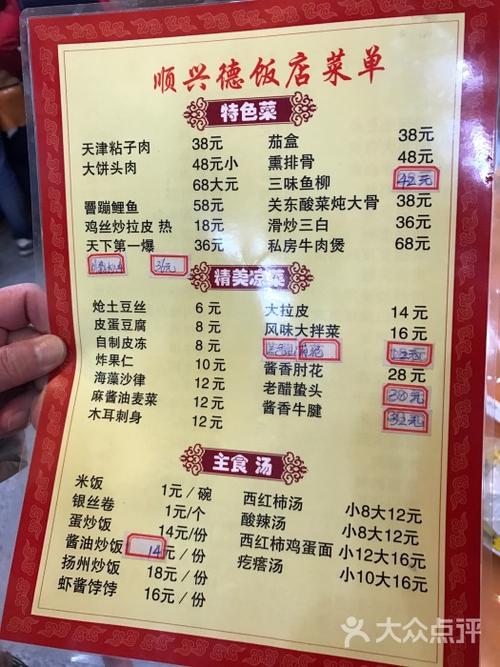 顺兴德饭店菜单
特色菜
天津粘子肉 38元
大饼头肉 48元小
68大元
罾蹦鲤鱼 58元
鸡丝炒拉皮 热 18元
天下第一爆 36元
36元
茄盒 38元
熏排骨 48元
三味鱼柳 42元
关东酸菜炖大骨 38元
滑炒三白 36元
私房牛肉煲 68元
精美凉菜
炝土豆丝 6元
皮蛋豆腐 8元
自制皮冻 8元
炸果仁 10元
海藻沙律 12元
麻酱油麦菜 12元
木耳刺身 12元
大拉皮 14元
风味大拌菜 16元
12元
酱香肘花 28元
老醋蜇头 38元
酱香牛腱 32元
主食 汤
米饭 1元/碗
银丝卷 1元/个
蛋炒饭 14元/份
酱油炒饭 14元/份
扬州炒饭 18元/份
虾酱饽饽 16元/份
西红柿汤 小8大12元
酸辣汤 小8大12元
西红柿鸡蛋面 小12大16元
疙瘩汤 小10大16元
大众点评